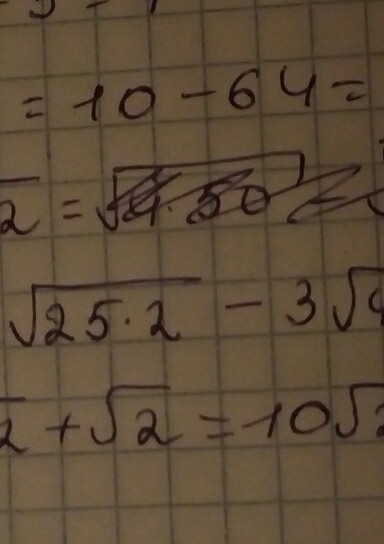 = 10 - 64 =
2 = √4·50
√25·2 - 3√
2 + √2 = 10√2